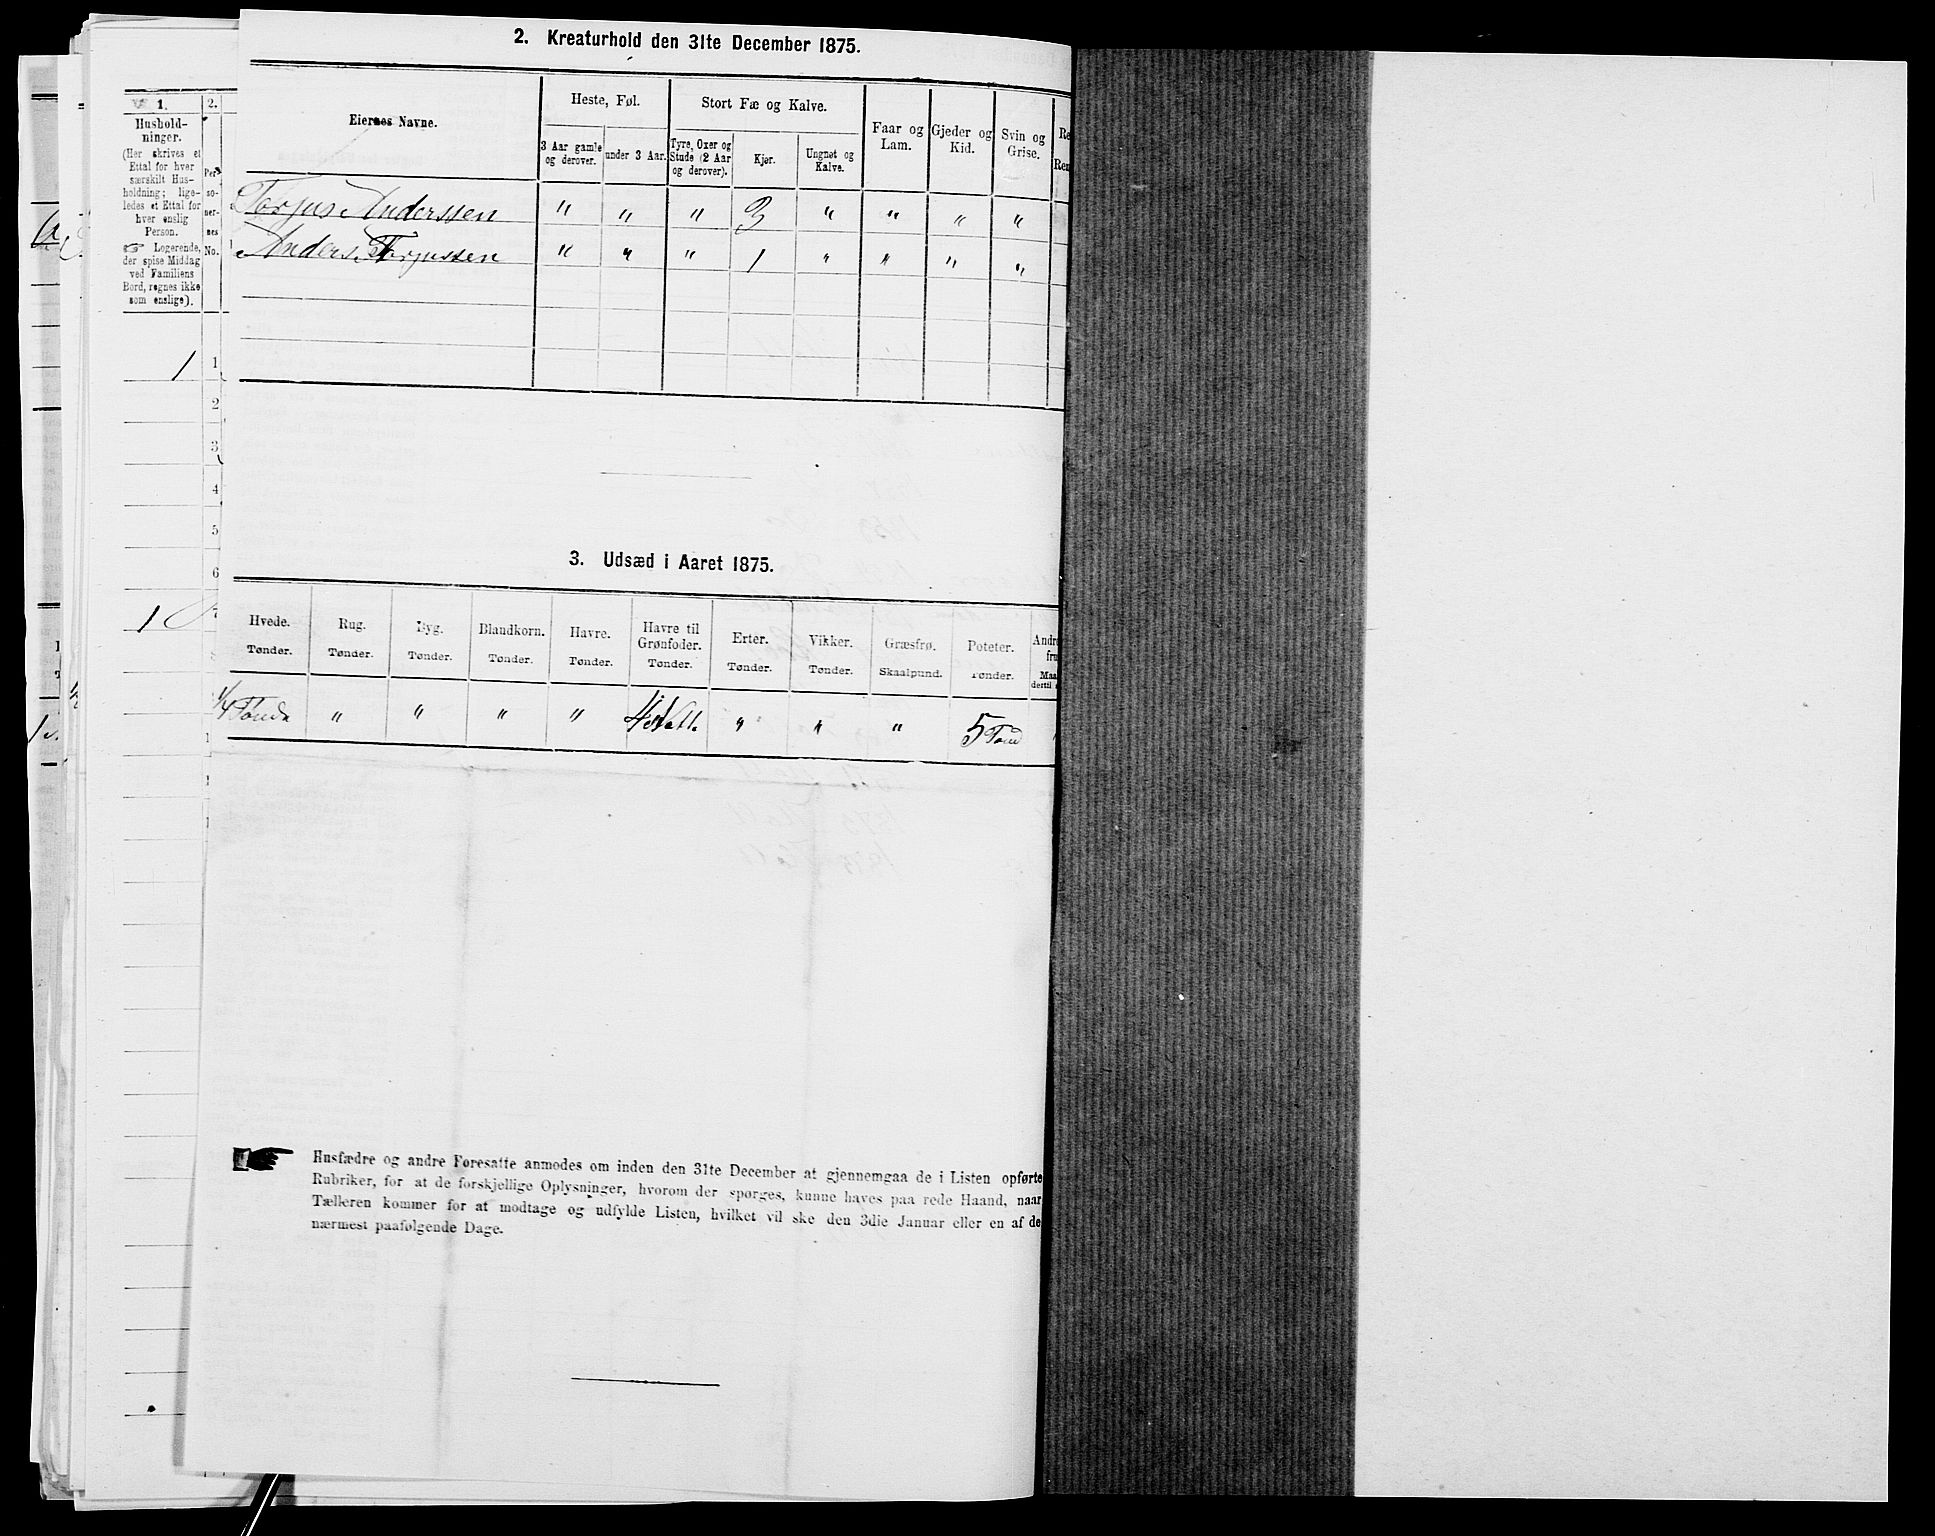 2. Kreaturhold den 31te December 1875.
Eiernes Navne.
Heste, Føl.
Stort Fæ og Kalve.
Faar og Lam.
Gjeder og Kid.
Svin og Grise.
3 Aar gamle og derover.
under 3 Aar.
Tyre, Oxer og Stude (2 Aar og derover).
Kjør.
Ungnøt og Kalve.
Torjus Anderssen " " " 3 " " " "
Anders Torjussen " " " 1 " " " "
3. Udsæd i Aaret 1875.
Hvede. Rug. Byg. Blandkorn. Havre. Havre til Grønfoder. Erter. Vikker. Græsfrø. Poteter.
Tønder. Tønder. Tønder. Tønder. Tønder. Tønder. Tønder. Tønder. Skaalpund. Tønder.
1/4 Tønde " " " " " " " 5 Tønd
Husfædre og andre Foresatte anmodes om inden den 31te December at gjennemgaa de i Listen opførte
Rubriker, for at de forskjellige Oplysninger, hvorom der spørges, kunne haves paa rede Haand, naar
Tælleren kommer for at modtage og udfylde Listen, hvilket vil ske den 3die Januar eller en af de
nærmest paafølgende Dage.
1.
Hushold-
ninger.
(Her skrives et
Ettal for hver
særskilt Hus-
holdning; lige-
ledes et Ettal for
hver enslig
Person.
☞ Logerende,
der spise Middag
ved Familiens
Bord, regnes ikke
som enslige).
2.
Per
so-
ner-
nes
No.
1
1
2
3
4
5
6
1
7